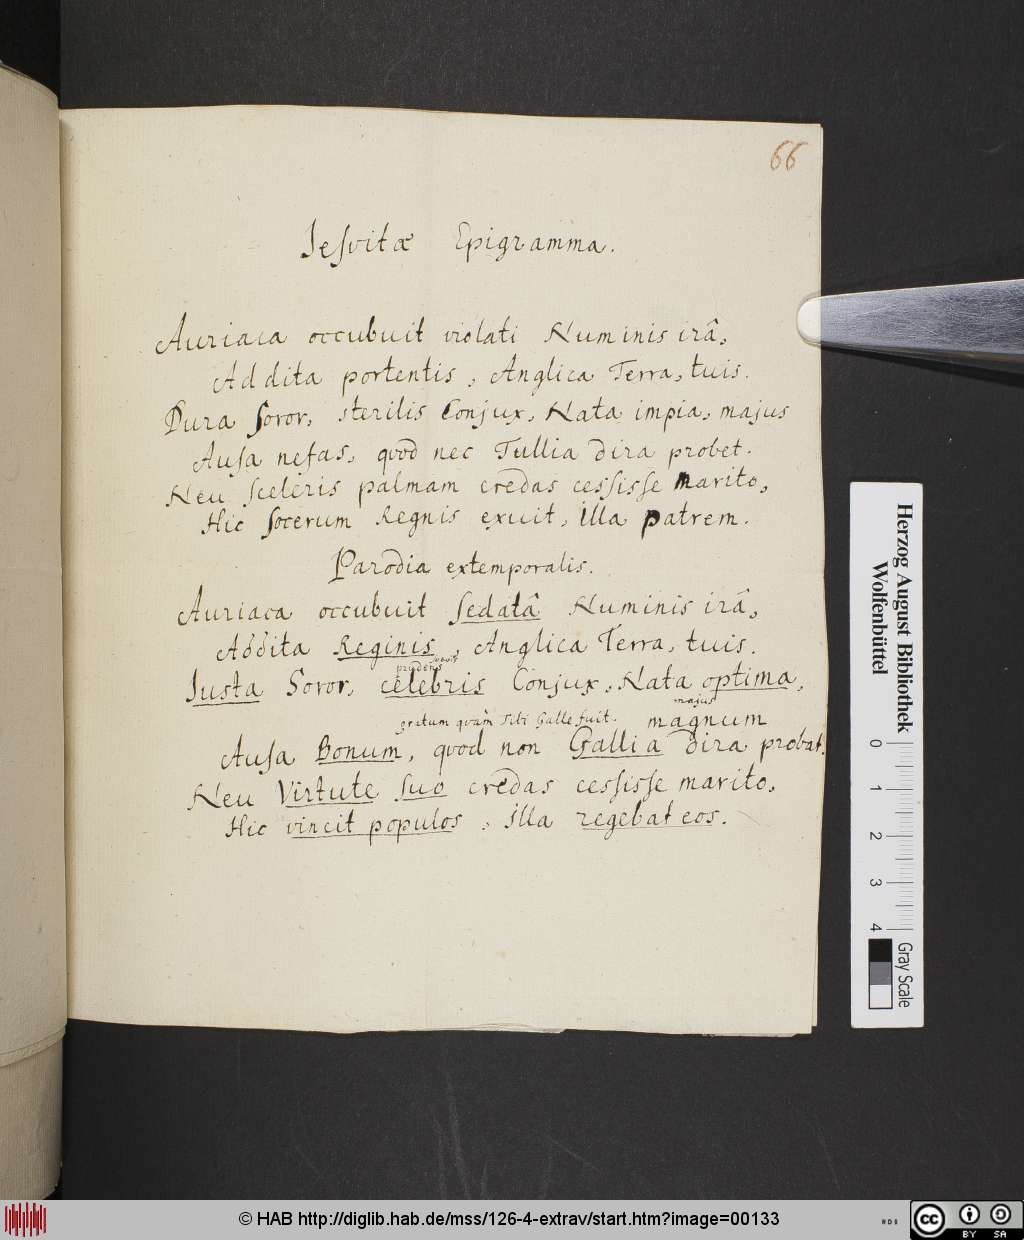 66
Jesvitæ Epigramma.
Auriaca occubuit violati Numinis irâ,
Addita portentis, Anglica Terra, tuis.
Dura Soror, sterilis Conjux, Nata impia, majus
Ausa nefas, quod nec Tullia dira probet.
Neu sceleris palmam credas cessisse marito,
Hic socerum Regnis exuit, illa patrem.
Parodia extemporalis.
Auriaca occubuit sedatâ Numinis irâ,
Addita Reginis, Anglica Terra, tuis.
prudens
Justa Soror, celebris Conjux, Nata optima,
majus
gratum quàm Tibi Galle fuit. magnum
Ausa Bonum, quod non Gallia dira probat.
Neu Virtute suo credas cessisse marito,
Hic vincit populos, illa regebat eos.
Herzog August Bibliothek
Wolfenbüttel
0 1 2 3 4
Gray Scale
© HAB http://diglib.hab.de/mss/126-4-extrav/start.htm?image=00133
cc BY SA